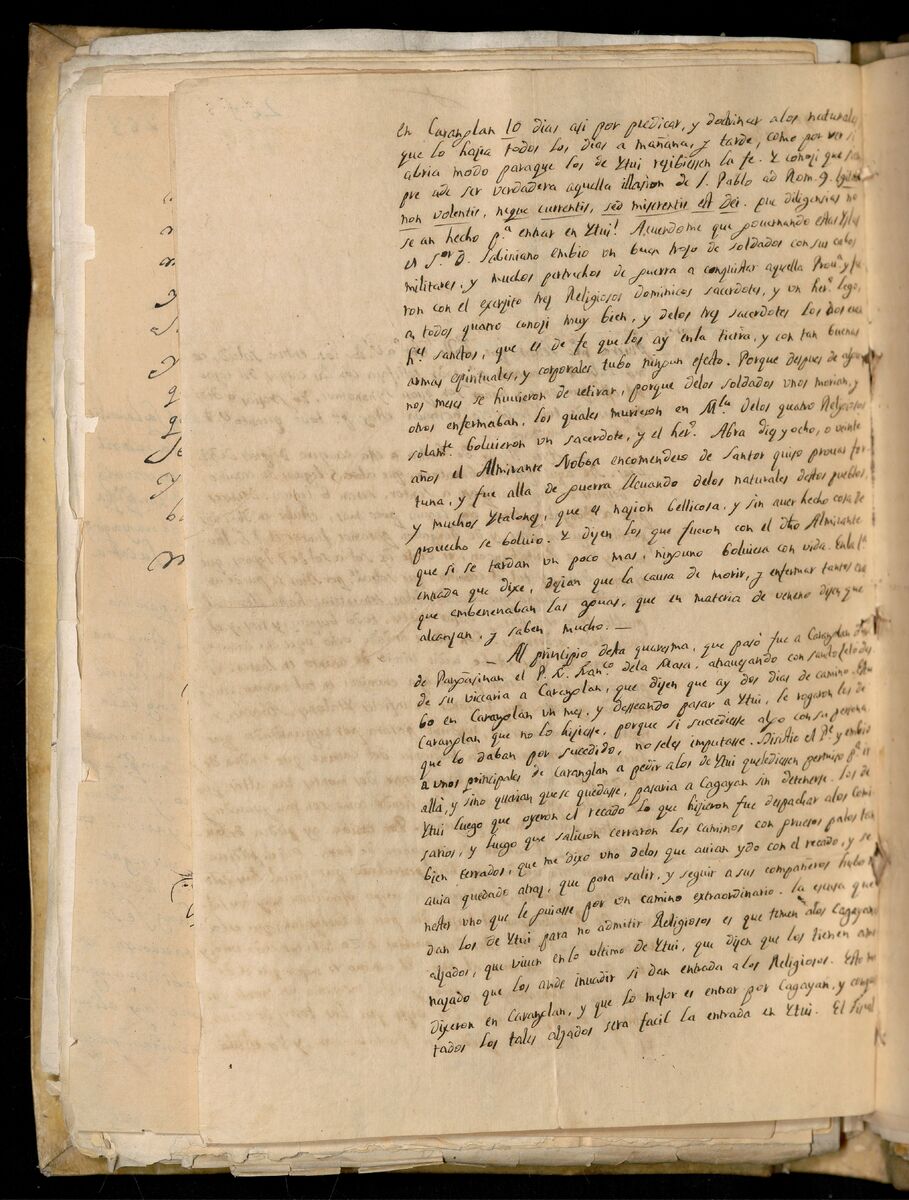 en Caranglan 10 dias asi por predicar, y doctrinar alos naturales
que lo hazia todos los dias a mañana, y tarde, como por ver si
abria modo paraque los de Ytui resibiessen la fe. Y conosi que
pre ade ser verdadera aquella illasion de S. Pablo ad Rom. 9. igitur
non volentis, neque currentis, sed miserentis est Dei. que diligensias no
se an hecho pª. entrar en Ytui! Acuerdome que gouernando estas Yslas
el Sor. D. Sabiniano embio vn buen trozo de soldados con sus cabos
militares, y muchos pertrechos de guerra a conquistar aquella Prouª. y fue
ron con el exersito tres Religiosos dominicos sacerdotes, y vn herº. lego,
a todos quatro conosi muy bien, y delos tres sacerdotes los dos eran
santos, que es de fe que los ay enla tierra, y con tan buenas
armas espirituales, y corporales tubo ningun efecto. Porque despues de algu
nos meses se huuieron de retirar, porque delos soldados vnos morian, y
otros enfermaban, los quales murieron en Mla. Delos quatro Religiosos
solante. boluieron vn sacerdote, y el herº. Abra diez y ocho, o veinte
años el Almirante Noboa encomendero de Santor quiso prouar for
tuna, y fue alla de guerra lleuando delos naturales destos pueblos,
y muchos Ytalones, que es nasion bellicosa, y sin auer hecho cosa de
prouecho se boluio. Y dizen los que fueron con el dho Almirante
que si se tardan vn poco mas, ninguno boluiera con vida. Enla
entrada que dixe, dezian que la causa de morir, y enfermar tantos era
que embenenaban las aguas, que en materia de veneno dizen que
alcanzan, y saben mucho. —
— Al principio desta quaresma, que pasó fue a Caranglan
de Pangasinan el P. Fr. Franco. dela Masa, atrauesando con santo zelo
de su vicaria a Caranglan, que dizen que ay dos dias de camino. Estu
bo en Caranglan vn mes, y desseando pasar a Ytui, le rogaron los de
Caranglan que no lo hiziesse, porque si sucediesse algo con su persona,
que lo daban por sucedido, no seles imputasse. Disistio el Pe. y embio
a vnos principales de Caranglan a pedir alos de Ytui quele diessen permiso pª. ir
allá, y sino querian quese quedasse, pasaria a Cagayan sin detenerse. Los de
Ytui luego que oyeron el recado lo que hizieron fue despachar alos Comi
sarios, y luego que salieron cerraron los caminos con gruesos palos tan
bien serrados, que me dixo vno delos que auian ydo con el recado, y se
auia quedado atras, que para salir, y seguir a sus compañeros hubo
nester vno que le guiasse por vn camino extraordinario. La escusa que
dan los de Ytui para no admitir Religiosos es que temen alos Cagayanes
alzados, que viuen enlo vltimo de Ytui, que dizen que los tienen ame
nazado que los ande inuadir si dan entrada a los Religiosos. Esto me
dixeron en Caranglan, y que lo mejor es entrar por Cagayan, y conquis
tados los tales alzados sera facil la entrada en Ytui. El